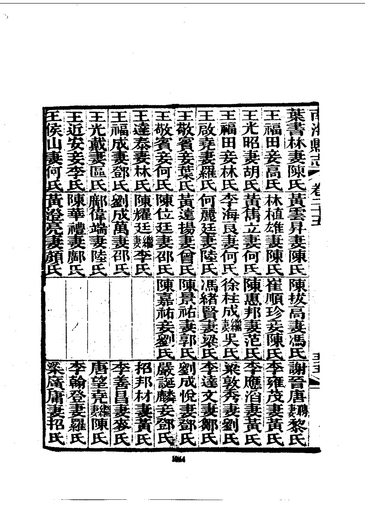 南海縣志 卷二十五
葉書林妻陳氏 黃雲昇妻陳氏 陳拔高妻馮氏 謝晉唐聘妻黎氏
王福田妾高氏 林植雄妻陳氏 崔順珍妾陳氏 李雍茂妻黃氏
王光昭妻胡氏 黃雋立妻何氏 陳惠邦妻范氏 李應滔妻黃氏
王福田妾林氏 李海良妻何氏 徐柱成繼妻吳氏 梁敦秀妻劉氏
王啟堯妻羅氏 何麗廷妻陸氏 馮緒賢妻梁氏 李達文妻鄒氏
王敬賓妾葉氏 黃遠揚妻曾氏 陳景祐妻郭氏 劉成悅妻鄧氏
王敬賓妾何氏 陳位廷妻邵氏 陳嘉祐妾劉氏 嚴誕麟妾鄧氏
王達泰妻林氏 陳耀廷繼妻李氏 招邦材妻黃氏
王福成妻鄧氏 劉成萬妻邵氏 李善昌妻麥氏
王光戴妻區氏 鄺偉端妻陸氏 唐望堯繼妻陳氏
王近安妾李氏 陳華禮妻鄺氏 李翰登妻羅氏
王侯山妻何氏 黃澄亮妻顏氏 梁廣庸妻招氏